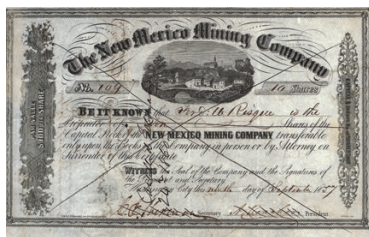 The New Mexico Mining Company
No. 109
10 Shares
BE IT KNOWN that
is the
Proprietor of Ten Shares of the
Capital Stock of the NEW MEXICO MINING COMPANY transferable
only upon the Books of this Company in person or by Attorney on
Surrender of this Certificate
WITNESS the Seal of the Company and the Signatures of
the President and Secretary
City this day of September 1857
Secretary
President